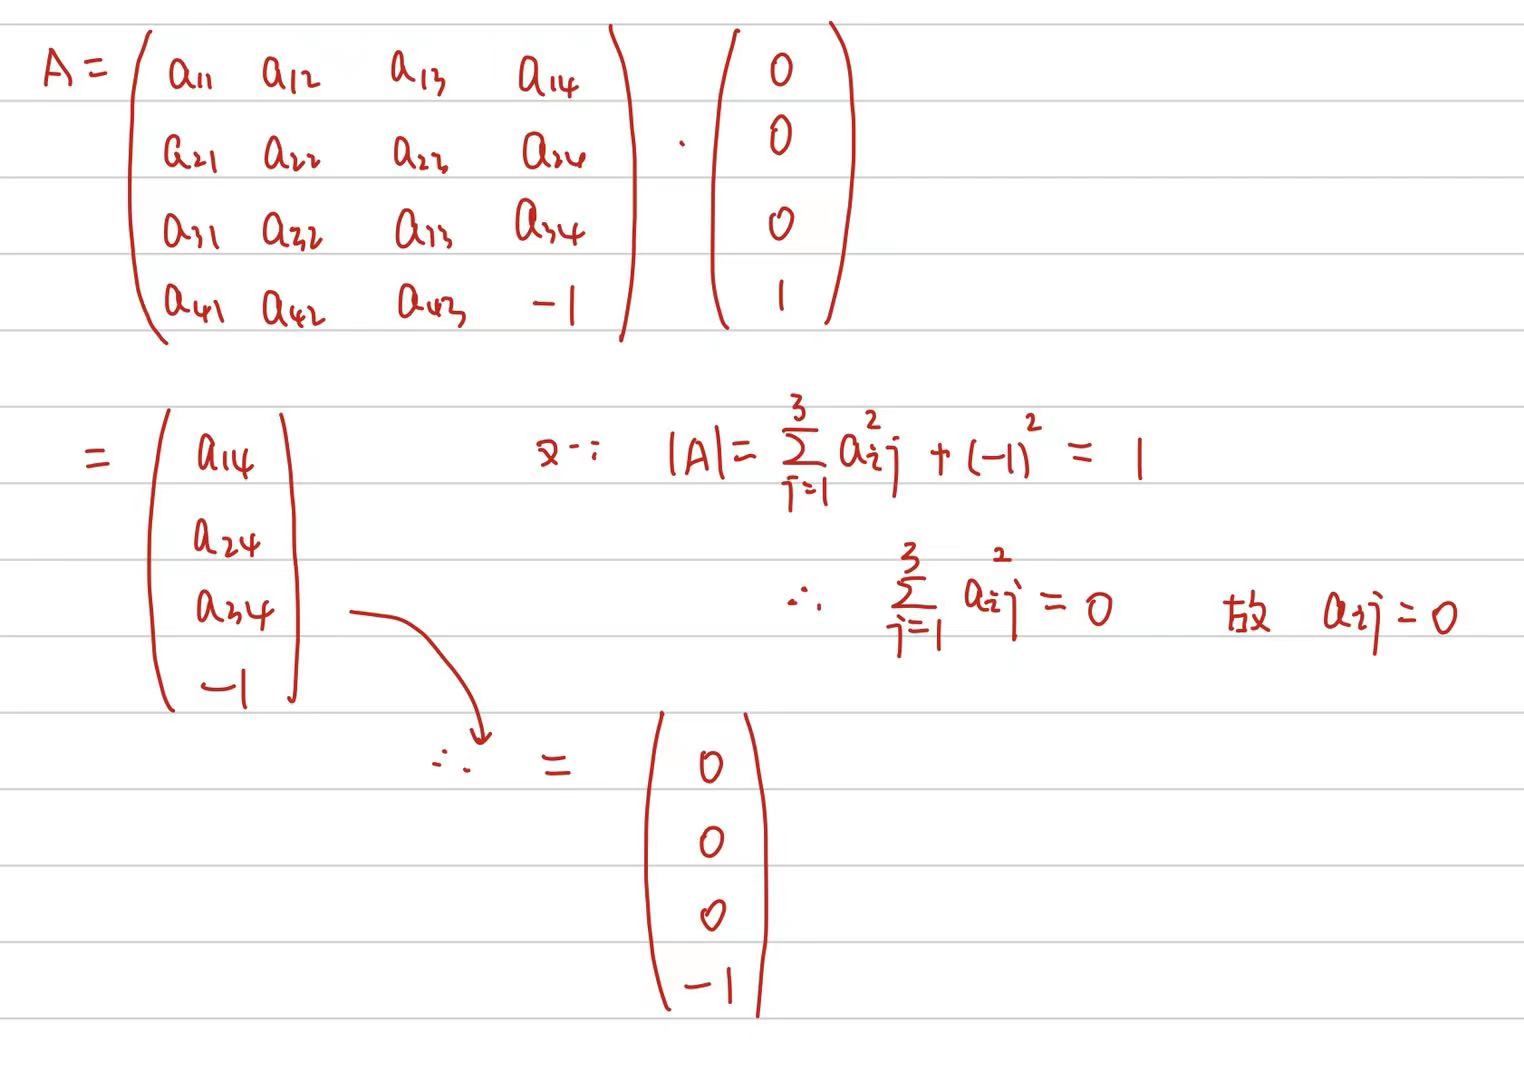 A = ( a11 a12 a13 a14 ) · ( 0 )
( a21 a22 a23 a24 ) ( 0 )
( a31 a32 a33 a34 ) ( 0 )
( a41 a42 a43 -1 ) ( 1 )
= ( a14 a24 a34 -1 )
又∵ |A| = ∑_{j=1}^{3} a_{ij}^2 + (-1)^2 = 1
∴ ∑_{j=1}^{3} a_{ij}^2 = 0 故 a_{ij} = 0
∴ = ( 0 0 0 -1 )